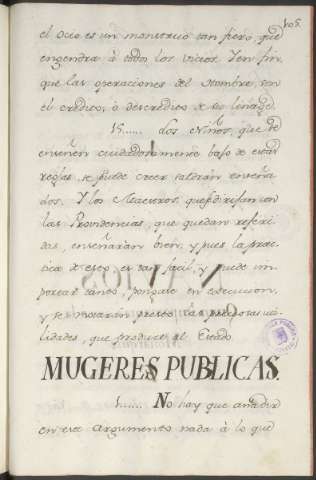 105.
el Ocio es un monstruo tan fiero, que
engendra à todos los vicios. Y en fin,
que las operaciones del Hombre, son
el credito, ò descredito de su linage.
15...... Los Niños, que se
enseñen cuidadosamente bajo de estas
reglas, se puede creer saldràn enseña
dos. Y los Maestros, que se dirijan con
las Providencias, que quedan referi
das, enseñaràn bien, y pues la prac
tica de esto es tan facil, y puede im
portar tanto, pongase en execucion,
y se notaràn presto las preciosas uti
lidades, que produce al Estado.
MUGERES PUBLICAS.
1...... No hay que añadir
en este argumento nada à lo que